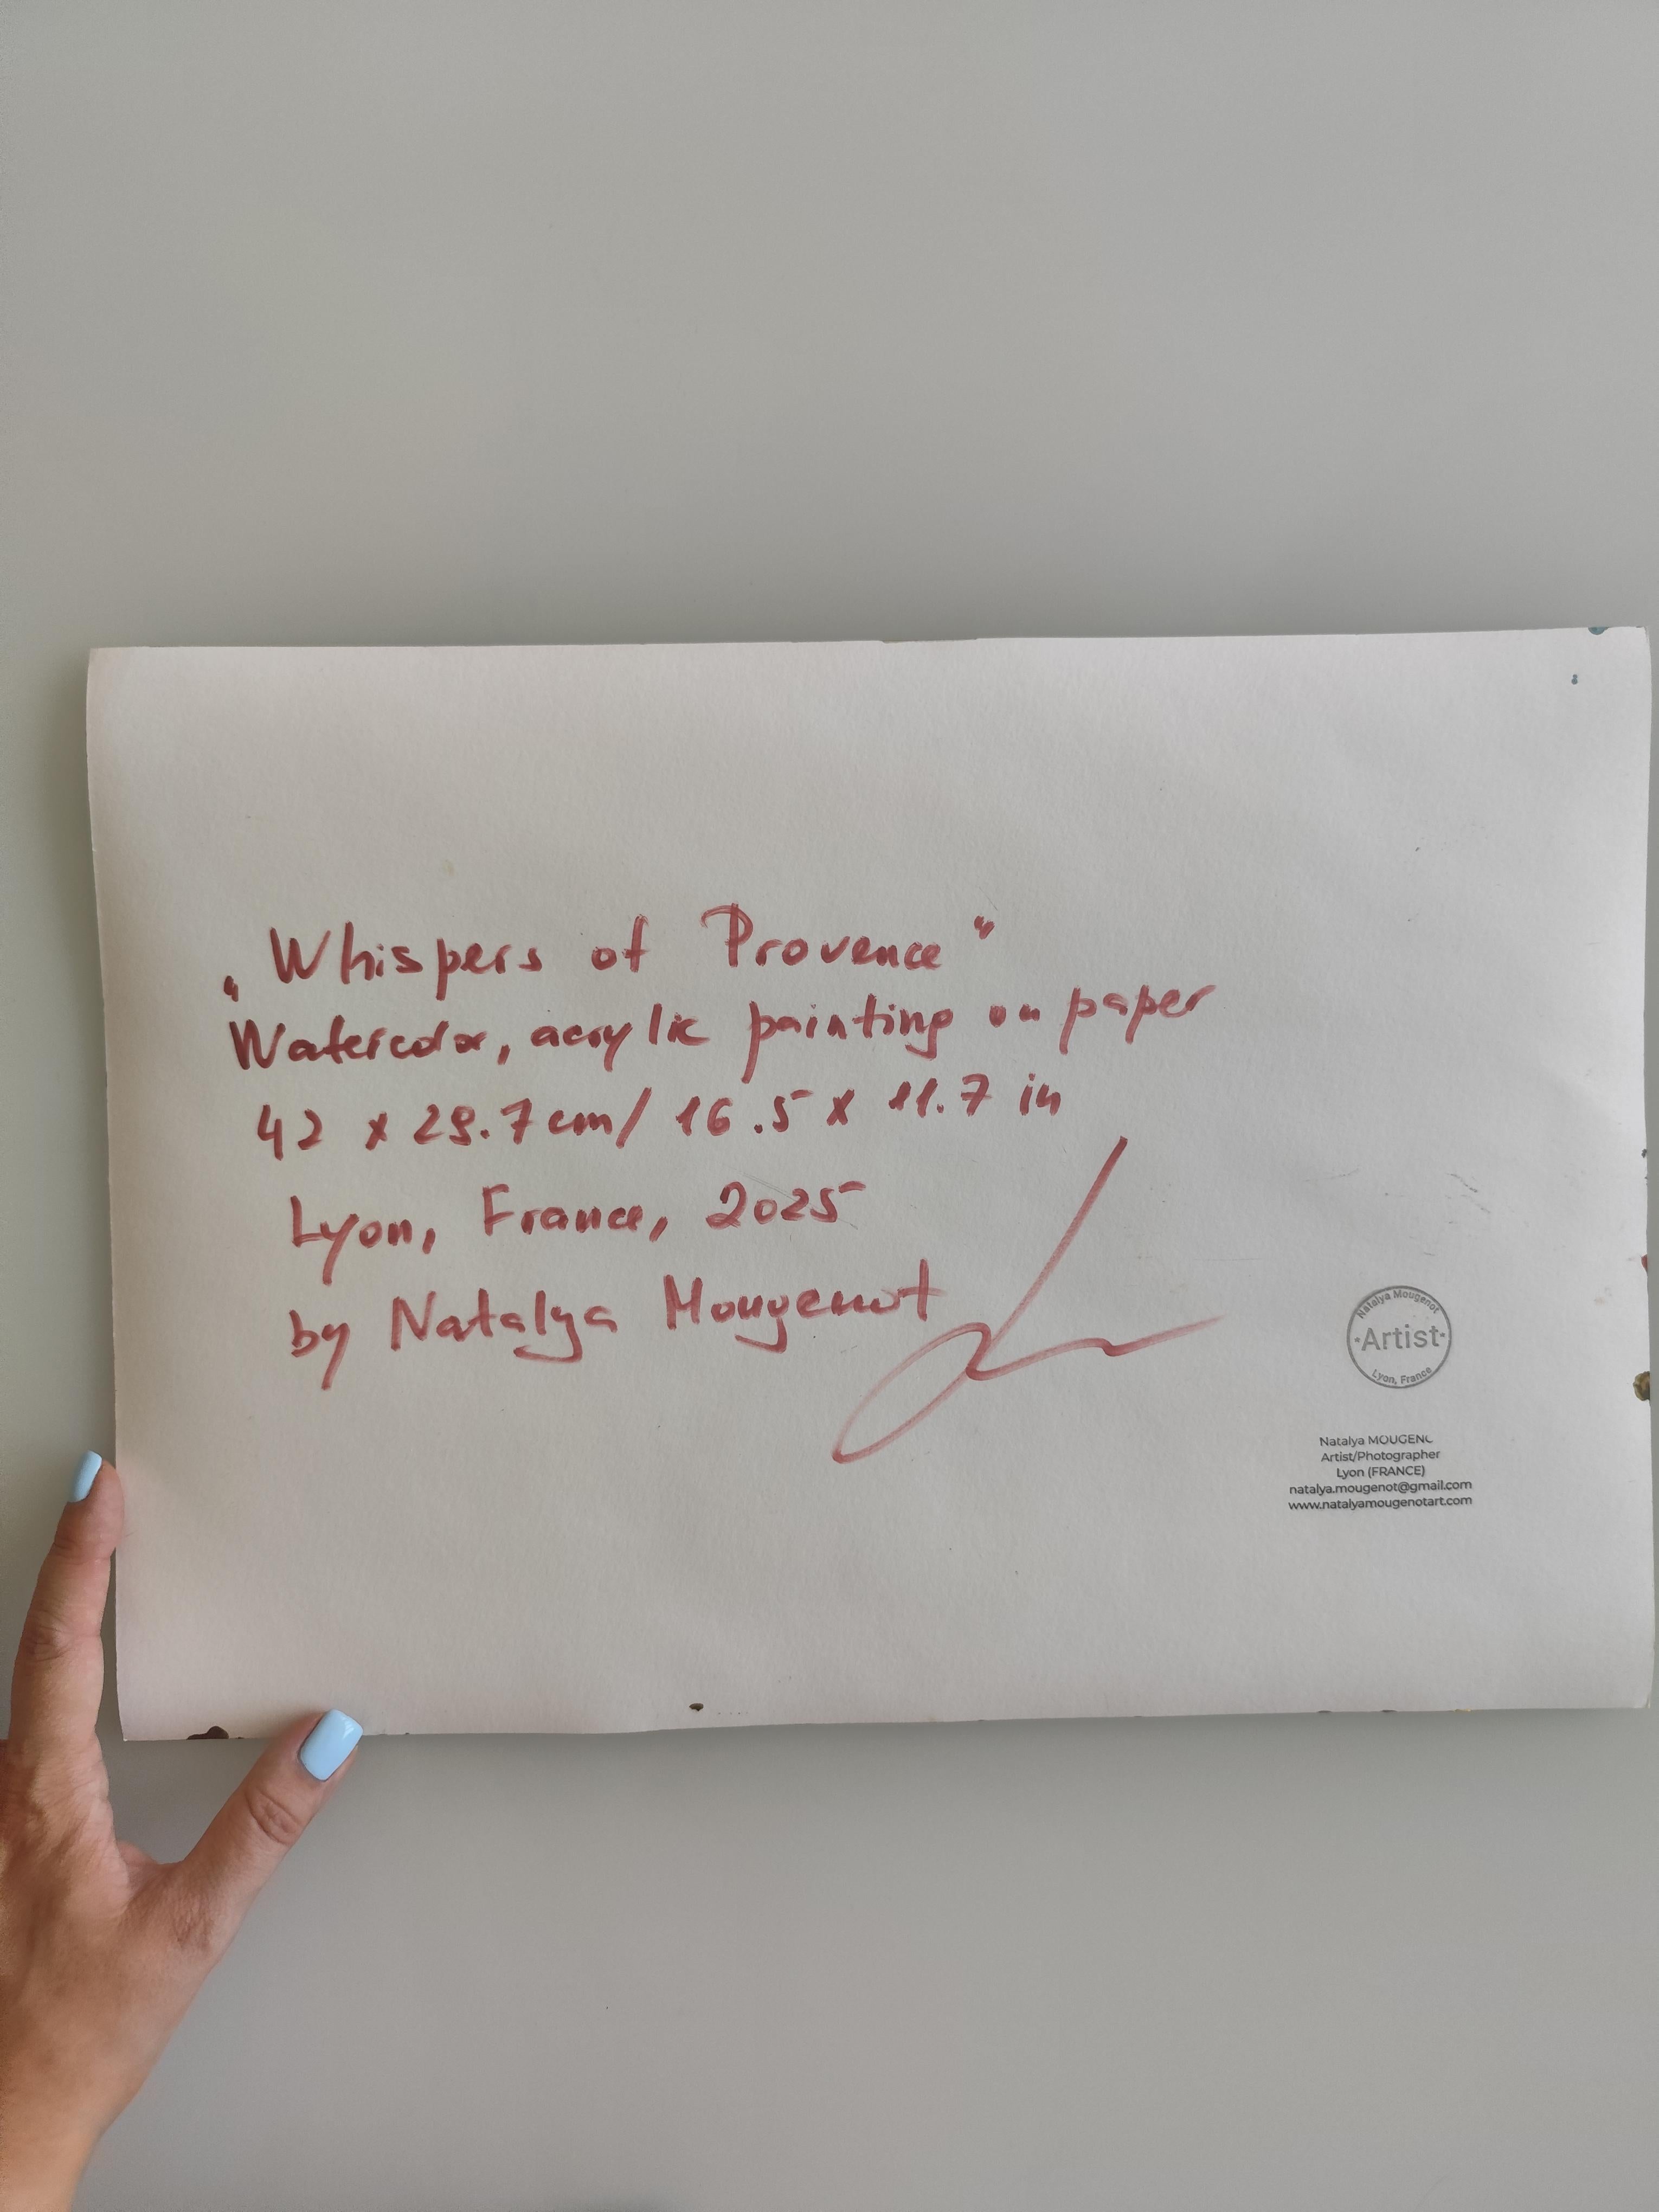 „Whispers of Provence"
Watercolor, acrylic painting on paper
42 x 29.7 cm/ 16.5 x 11.7 in
Lyon, France, 2025
by Natalya Mougenot
Natalya Mougenot
•Artist•
Lyon, France
Natalya MOUGENC
Artist/Photographer
Lyon (FRANCE)
natalya.mougenot@gmail.com
www.natalyamougenotart.com